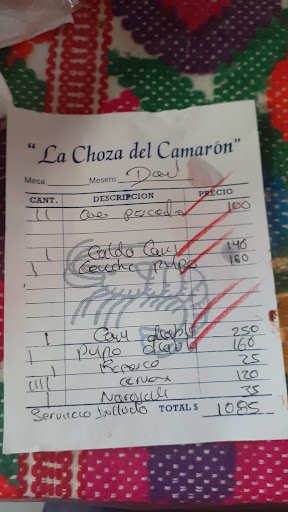 “ La Choza del Camarón”
Mesa: Mesero: Dan
CANT. DESCRIPCION PRECIO
11 100
1 Caldo Cam 140
1 pulpo 160
1 Cam diabla 250
1 Pulpo diabla 160
1 Refresco 25
1111 cervezas 120
1 35
Servicio Incluido TOTAL $ 1085